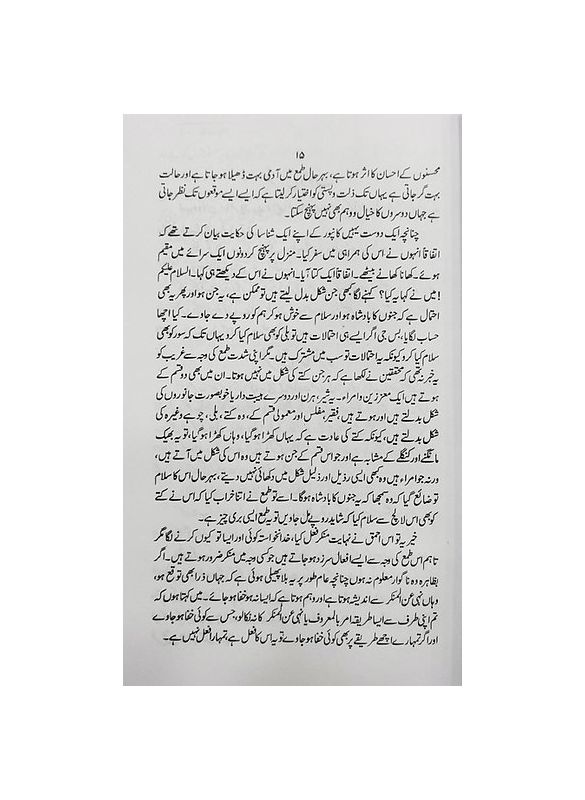 ۱۵
محسنوں کے احسان کا اثر ہوتا ہے، بہر حال طمع میں آدمی بہت ڈھیلا ہو جاتا ہے اور حالت
بہت گر جاتی ہے یہاں تک ذلت و پستی کو اختیار کر لیتا ہے کہ ایسے ایسے موقعوں تک نظر جاتی
ہے جہاں دوسروں کا خیال و وہم بھی نہیں پہنچ سکتا۔
چنانچہ ایک دوست یہیں کانپور کے اپنے ایک شناسا کی حکایت بیان کرتے تھے کہ
اتفاقاً انہوں نے اس کی ہمراہی میں سفر کیا۔ منزل پر پہنچ کر دونوں ایک سرائے میں مقیم
ہوئے۔ کھانا کھانے بیٹھے۔ اتفاقاً ایک کتا آیا۔ انہوں نے اس کے دیکھتے ہی کہا۔ السلام علیکم
! میں نے کہا یہ کیا؟ کہنے لگا کبھی جن شکل بدل لیتے ہیں تو ممکن ہے، یہ جن ہو اور پھر یہ بھی
احتمال ہے کہ جنوں کا بادشاہ ہو اور سلام سے خوش ہو کر ہم کو روپے دے جاوے۔ کیا اچھا
حساب لگایا، بس جی اگر ایسے ہی احتمالات ہیں تو بلی کو بھی سلام کیا کرو یہاں تک کہ سور کو بھی
سلام کیا کرو کیونکہ یہ احتمالات تو سب میں مشترک ہیں۔ مگر اپنی شدت طمع کی وجہ سے غریب کو
یہ خبر نہ تھی کہ محققین نے لکھا ہے کہ ہر جن کتے کی شکل میں نہیں ہوتا۔ ان میں بھی دو قسم کے
ہوتے ہیں ایک معززین و امراء۔ یہ شیر، ہرن اور دوسرے ہیبت دار یا خوبصورت جانوروں کی
شکل بدلتے ہیں اور ہوتے ہیں، فقیر و مفلس اور معمولی قسم کے، وہ کتے، بلی، چوہے وغیرہ کی
شکل بدلتے ہیں، کیونکہ کتے کی عادت ہے کہ یہاں کھڑا ہو گیا، وہاں کھڑا ہو گیا، تو یہ بھیک
مانگنے اور کنگلے کے مشابہ ہے اور جو اس قسم کے جن ہوتے ہیں وہ اس کی شکل میں آتے ہیں،
ورنہ جو امراء ہیں وہ کبھی ایسی رذیل اور ذلیل شکل میں دکھائی نہیں دیتے، بہر حال اس کا سلام
تو ضائع گیا کہ وہ سمجھا کہ یہ جنوں کا بادشاہ ہوگا۔ اسے تو طمع نے اتنا خراب کیا کہ اس نے کتے
کو بھی اس لالچ سے سلام کیا کہ شاید روپے مل جاویں تو یہ طمع ایسی بری چیز ہے۔
خیر یہ تو اس احمق نے نہایت منکر فعل کیا، خدانخواستہ کوئی اور ایسا تو کیوں کرنے لگا مگر
تاہم اس طمع کی وجہ سے ایسے افعال سرزد ہو جاتے ہیں جو کسی وجہ میں منکر ضرور ہوتے ہیں۔ اگر
بظاہر وہ ناگوار معلوم نہ ہوں چنانچہ عام طور پر یہ بلا پھیلی ہوئی ہے کہ جہاں ذرا بھی توقع ہو،
وہاں نہی عن المنکر سے اندیشہ ہوتا ہے اور وہم ہوتا ہے کہ ایسا نہ ہو خفا ہو جائے۔ میں کہتا ہوں کہ
تم اپنی طرف سے ایسا طریقہ امر بالمعروف یا نہی عن المنکر کا نہ نکالو، جس سے کوئی خفا ہو جاوے
اور اگر تمہارے اچھے طریقے پر بھی کوئی خفا ہو جاوے تو یہ اس کا فعل ہے، تمہارا فعل نہیں ہے۔